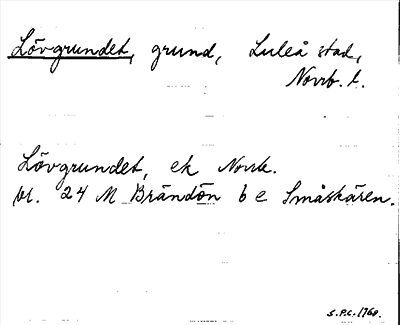 Lövgrundet, grund, Luleå stad,
Norrb. l.
Lövgrundet, ek Norrb.
bl. 24 M Brändön b e Småskären.
S.P.C. 1960.